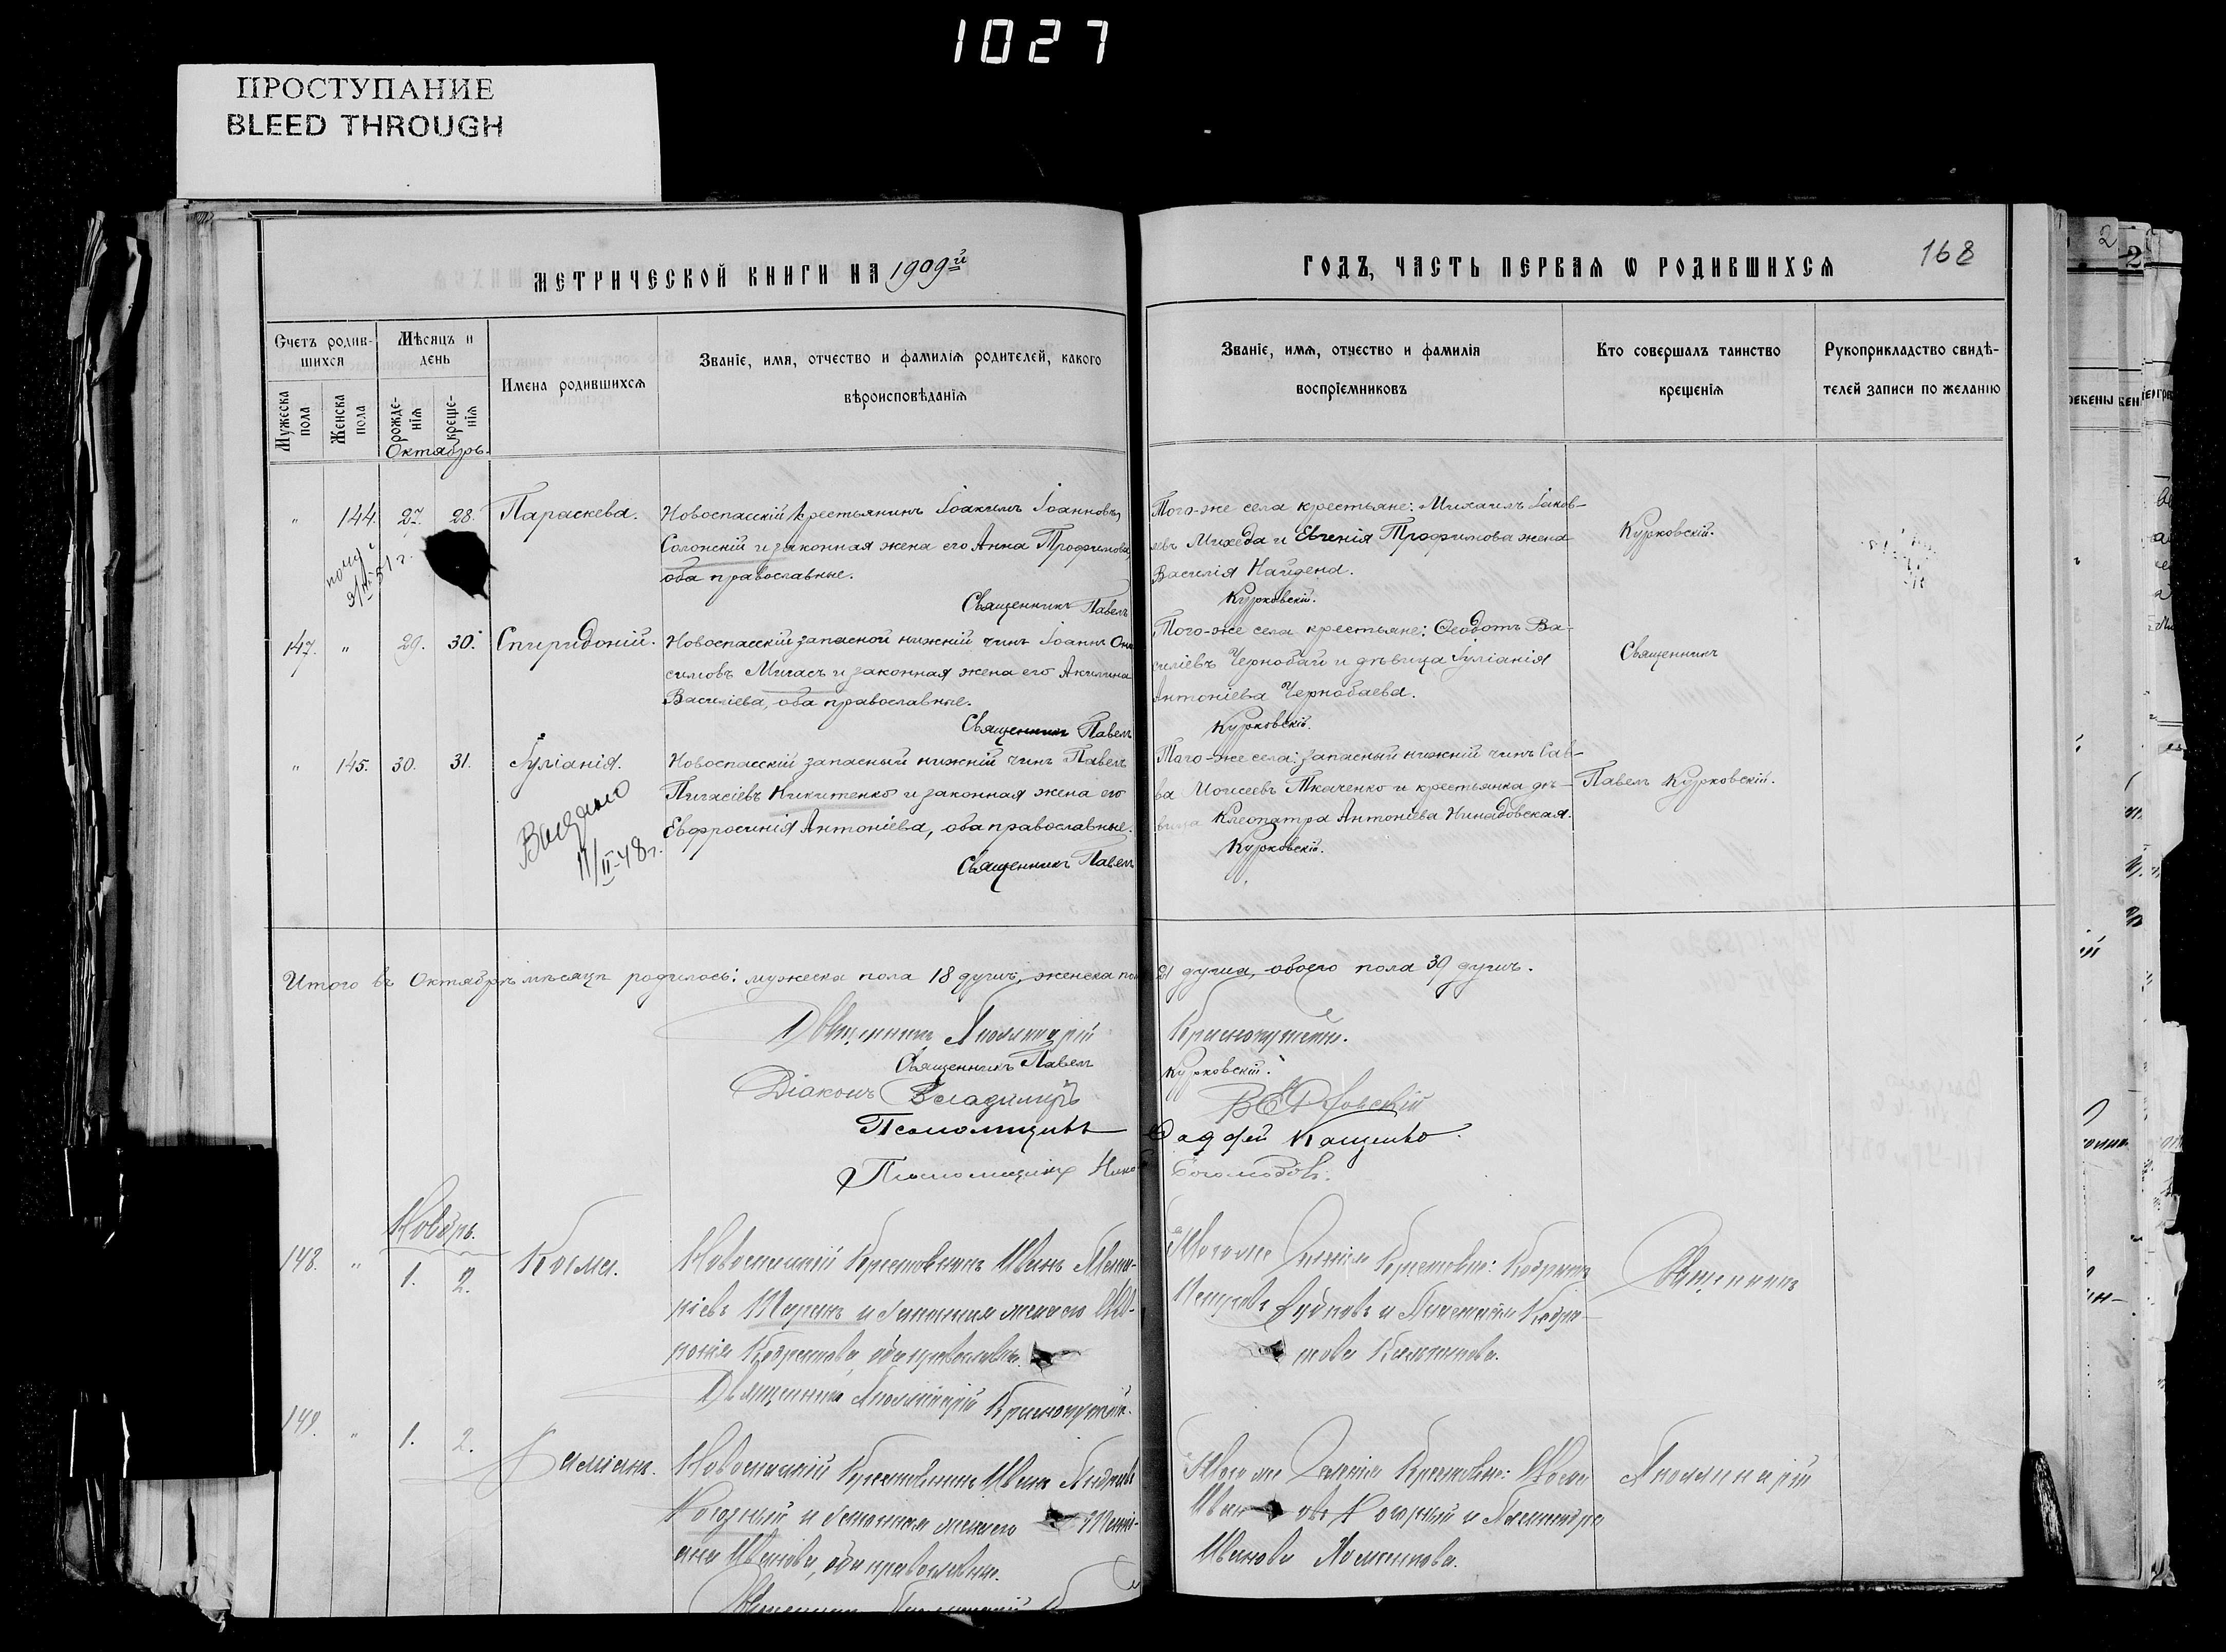 1027
ПРОСТУПАНИЕ
BLEED THROUGH
МЕТРИЧЕСКОЙ КНИГИ НА 1909й
ГОДЪ, ЧАСТЬ ПЕРВАЯ Ѡ РОДИВШИХСЯ
168
Счетъ родив-
шихся
Мужеска пола
Женска пола
Мѣсяцъ и
день
рожде-
нія
креще-
нія
Имена родившихся
Званіе, имя, отчество и фамилія родителей, какого
вѣроисповѣданія
Званіе, имя, отчество и фамилія
воспріемниковъ
Кто совершалъ таинство
крещенія
Рукоприкладство свидѣ-
телей записи по желанію
Октябрь.
" 144. 27. 28. Параскева.
Новоспасскій крестьянинъ Іоакимъ Іоанновъ
Солонскій и законная жена его Анна Трофимова,
оба православные.
Священникъ Павелъ
Того-же села крестьяне: Михаилъ Іаков-
левъ Михеда и Евгенія Трофимова жена
Василія Найдена.
Курковскій.
Курковскій.
147. " 29. 30. Спиридоній.
Новоспасскій запасной нижній чинъ Іоаннъ Они
симовъ Мигасъ и законная жена его Акилина
Василіева, оба православные.
Священникъ Павелъ
Того-же села крестьяне: Ѳеодотъ Ва-
силіевъ Чернобай и дѣвица Іуліанія
Антоніева Чернобаева.
Курковскій.
Священникъ
" 145. 30. 31. Іуліанія.
Выдано
11/II-48г.
Новоспасскій запасный нижній чинъ Павелъ
Пигасіевъ Никитенко и законная жена его
Евфросинія Антоніева, оба православные.
Священникъ Павелъ
Того-же села: запасный нижній чинъ Сав-
ва Моисеевъ Ткаченко и крестьянка дѣ-
вица Клеопатра Антоніева Нинадовская.
Курковскій.
Павелъ Курковскій.
Итого въ Октябрѣ мѣсяцѣ родилось: мужеска пола 18 душъ, женска пола 21 душа, обоего пола 39 душъ.
Священникъ Аполлинарій
Священникъ Павелъ Курковскій.
Діаконъ Владимиръ
Псаломщикъ Фаддей Кащенко.
Псаломщикъ
Ноябрь.
148. " 1. 2. Косма.
Новоспасскій Крестьянинъ Иванъ
и законная жена его
оба православн.
Священникъ Аполлинарій
Того же селенія Крестьяне:
Священникъ
149. " 1. 2. Даміанъ.
Новоспасскій Крестьянинъ Иванъ Андреевъ
и законная жена его
Иванова, оба православные.
Того же селенія Крестьяне:
Иван овъ и Александра
Иванова
Аполлинарій